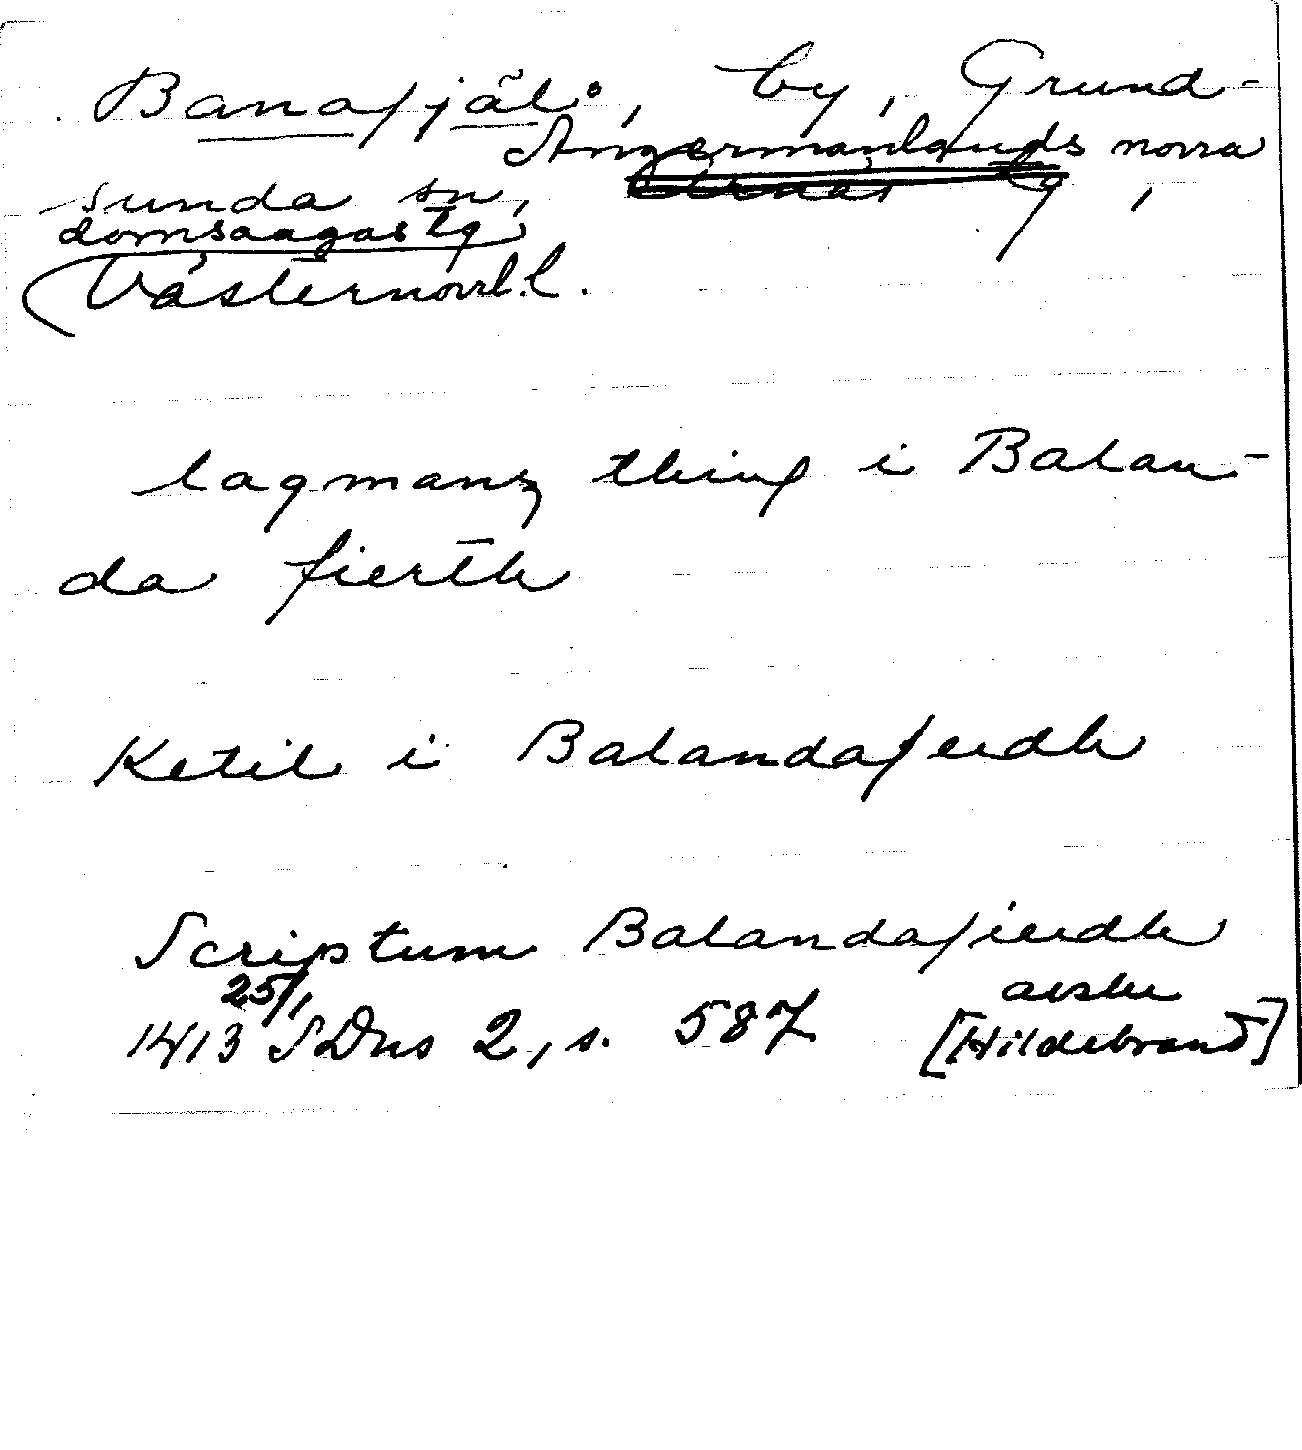 Banafjäl, by, Grund-
Ångermanlands norra
sunda sn, tg,
domsagas tg
Västernorrl. l.
lagmanz thing i Balan-
da fierth
Ketil i Balandaferdh
Scriptum Balandafierdh
25/1 avskr
1413 SDns 2, s. 587 [Hildebrand]